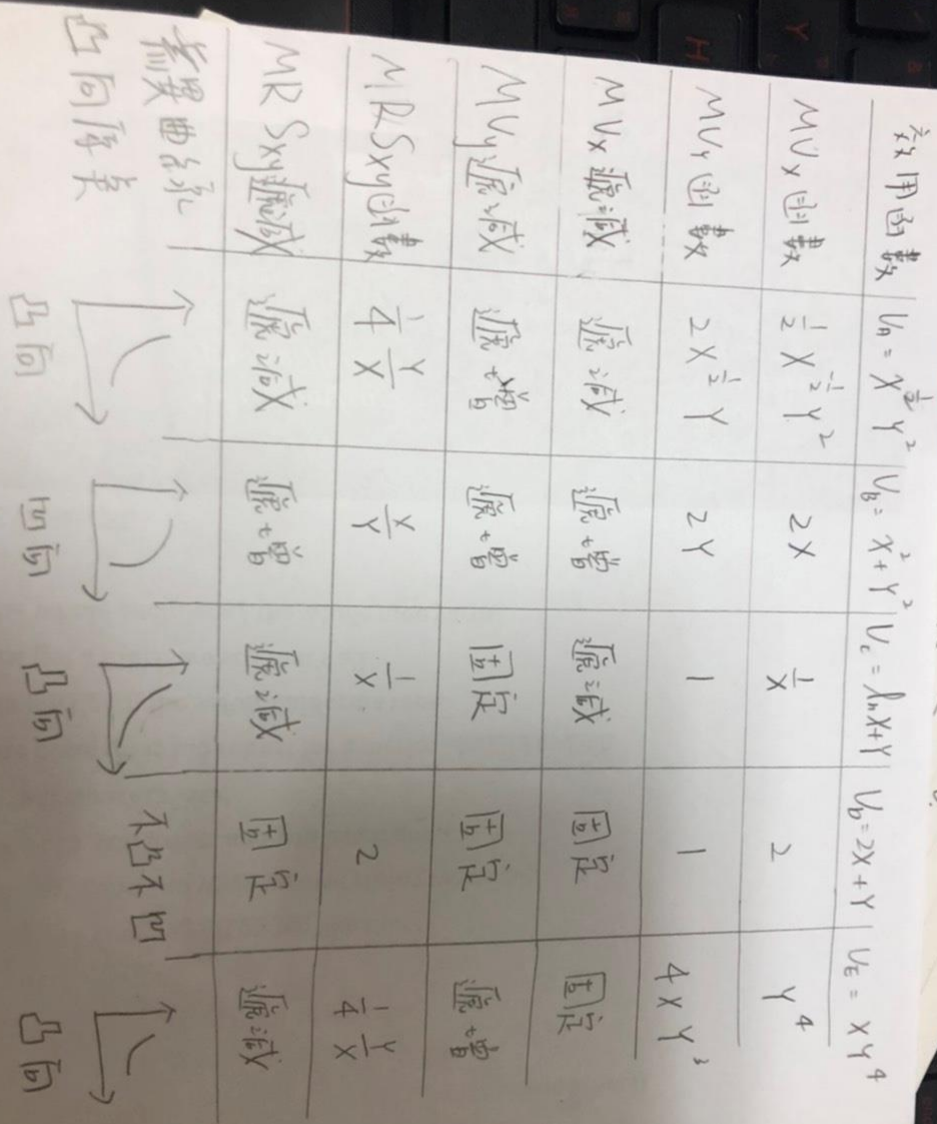 效用函數 U_A = X^{1/2} Y^2 U_B = X^2 + Y^2 U_C = ln X + Y U_D = 2X + Y U_E = XY^4
MU_X 函數 1/2 X^{-1/2} Y^2 2X 1/X 2 Y^4
MU_Y 函數 2X^{1/2} Y 2Y 1 1 4XY^3
MU_X 遞減 遞減 遞增 遞減 固定 固定
MU_y 遞減 遞增 遞增 固定 固定 遞增
MRS_xy 函數 1/4 Y/X X/Y 1/X 2 1/4 Y/X
MRS_xy 遞減 遞減 遞增 遞減 固定 遞減
無異曲線 不凸不凹
凸向原點 凸向 凹向 凸向 凸向